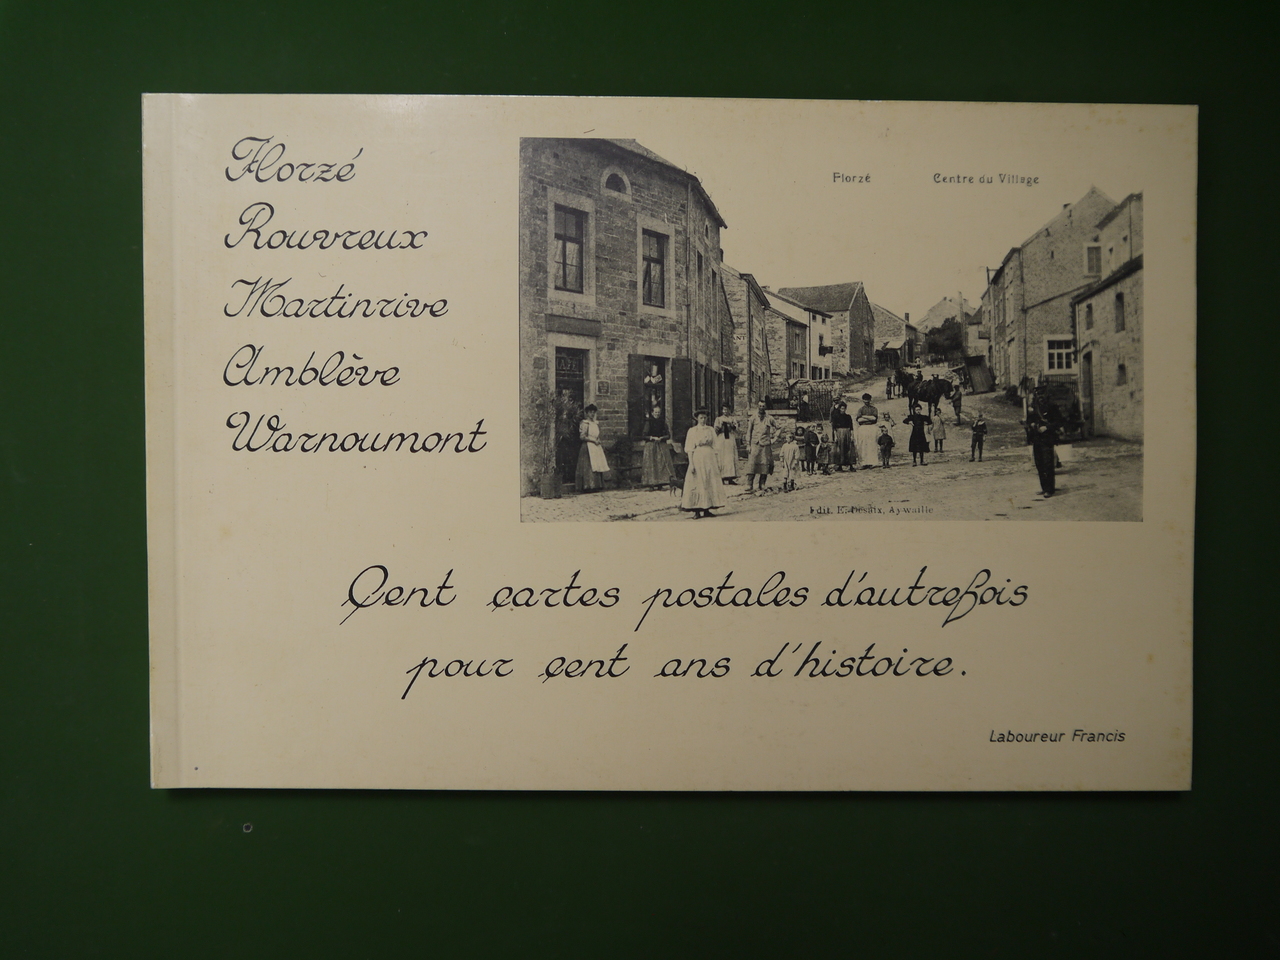 Florzé
Rouvreux
Martinrive
Amblève
Warnoumont
Florzé Centre du Village
Edit. E. Desaix, Aywaille
Cent cartes postales d'autrefois
pour cent ans d'histoire.
Laboureur Francis